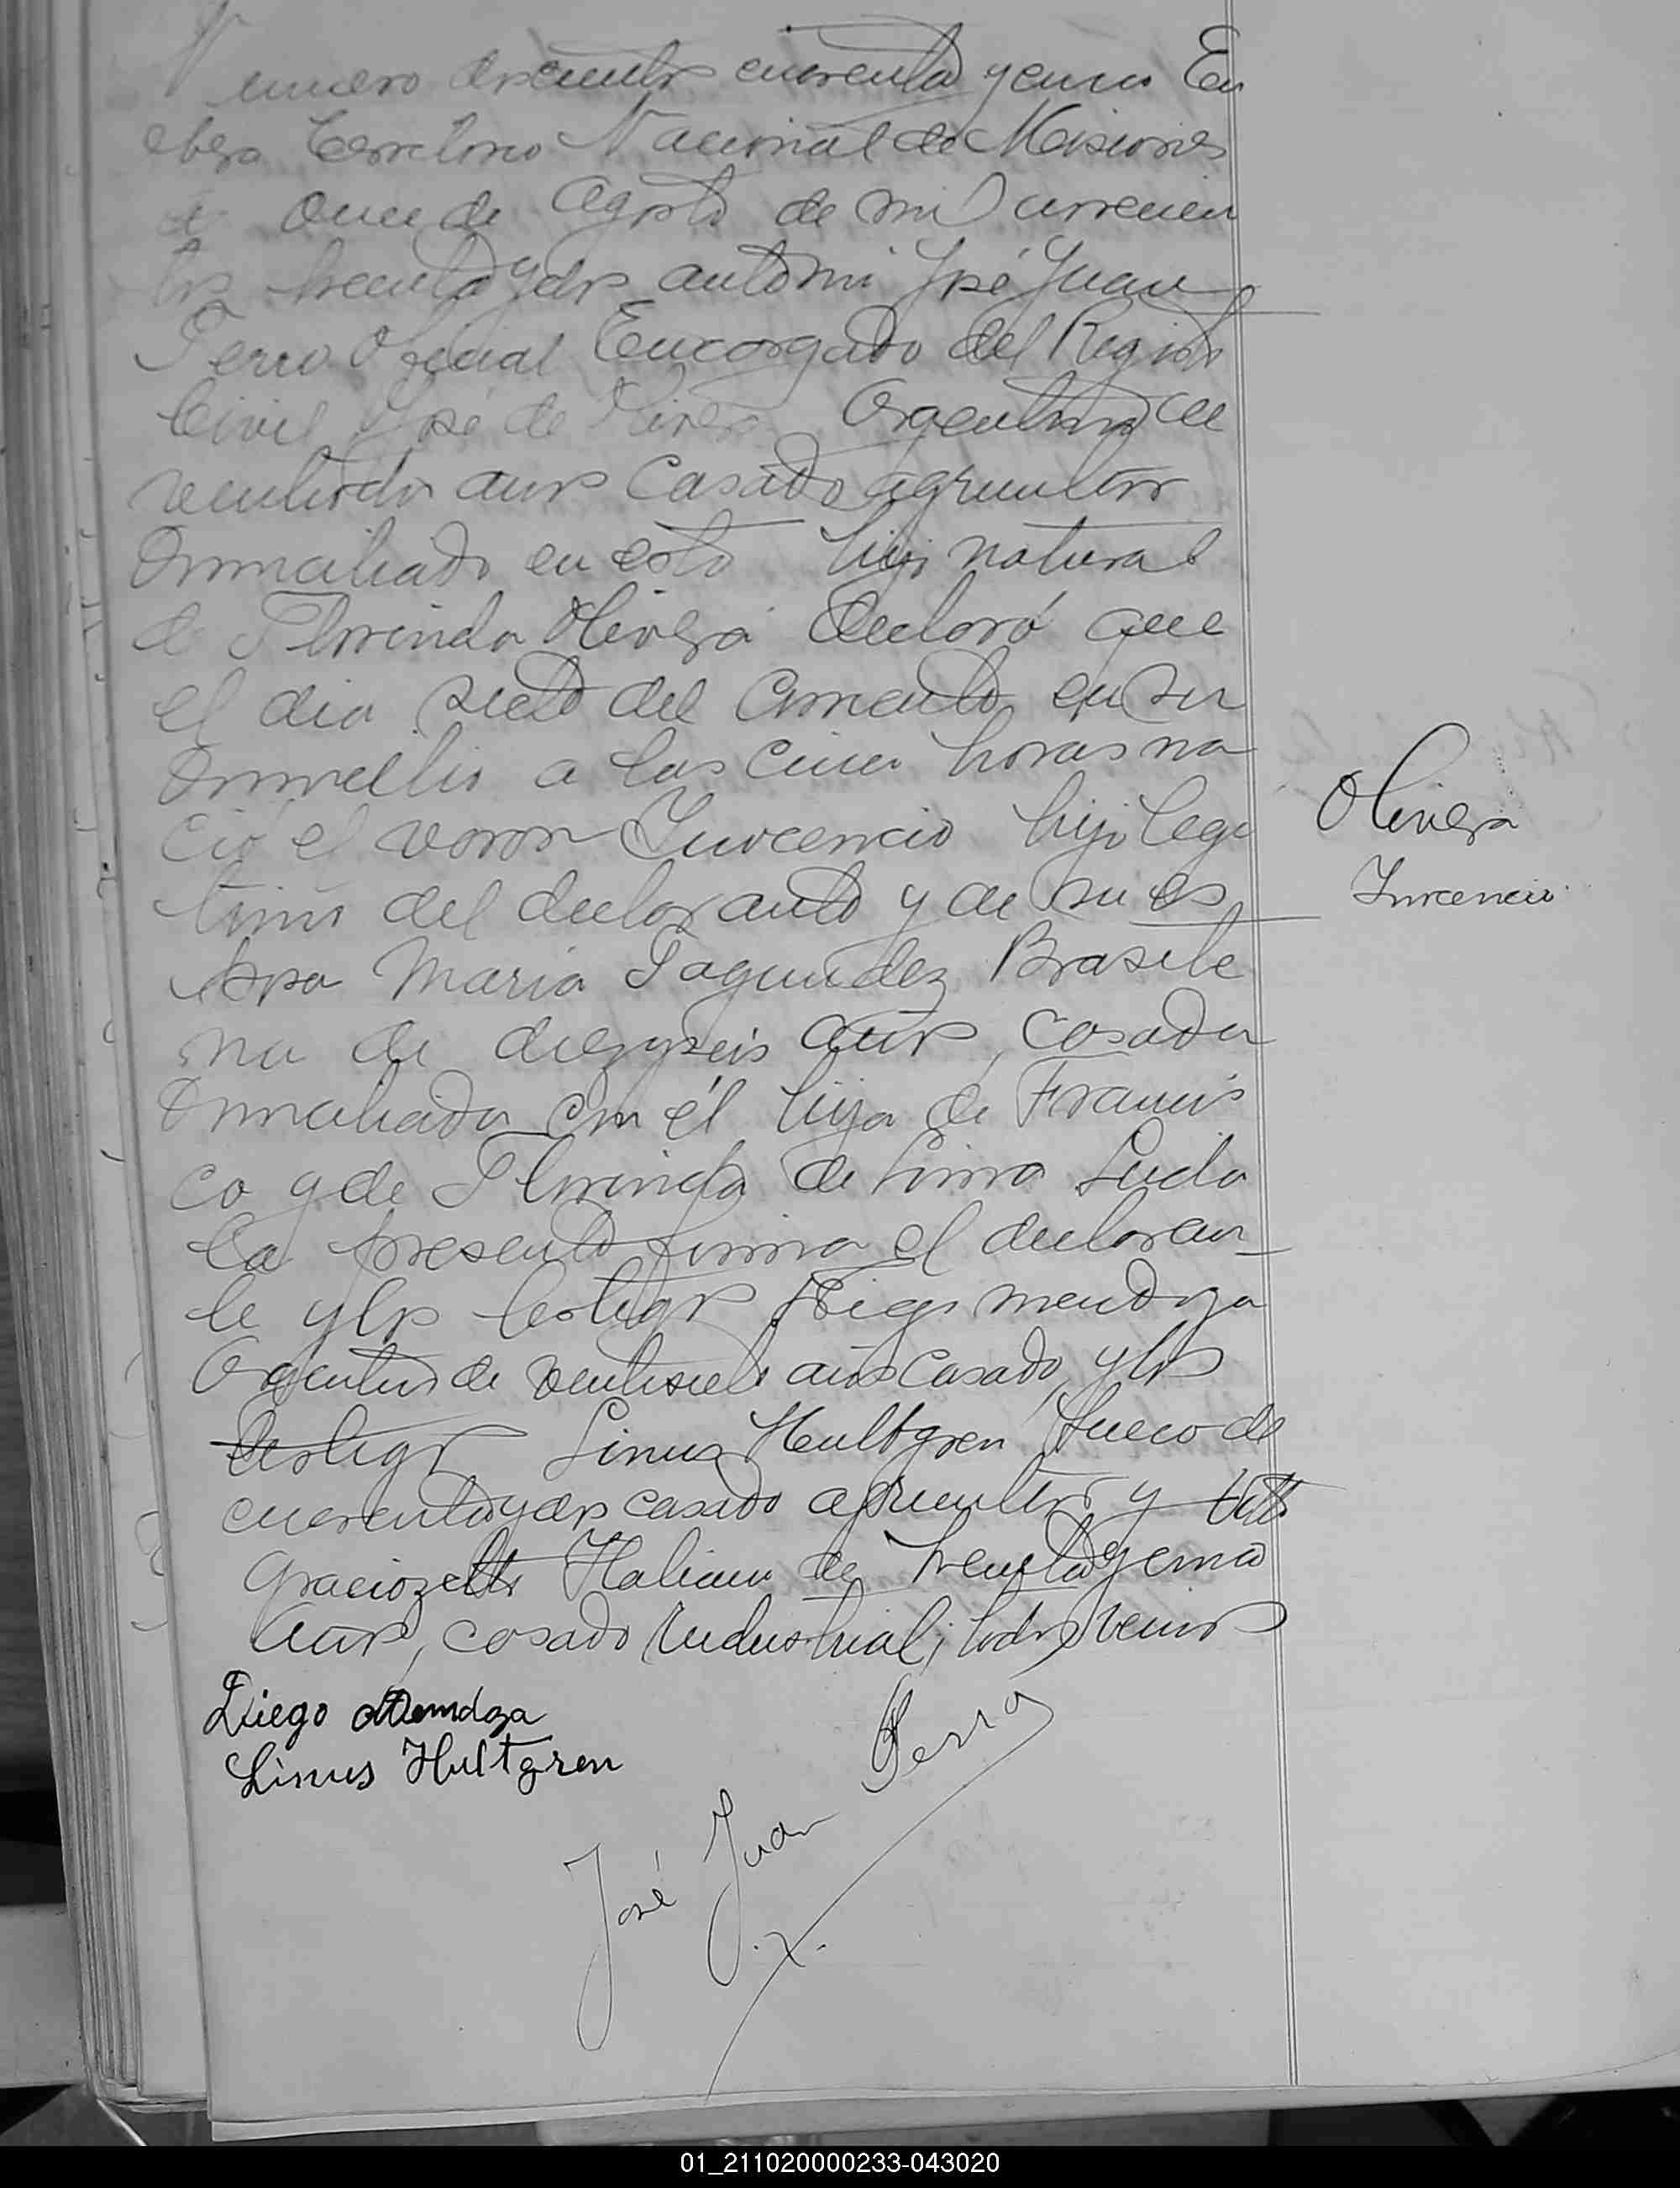 Numero doscientos cuarenta y cinco En
obera Territorio Nacional de Misiones
a once de Agosto de mil novecien
tos treinta y dos ante mi José Juan
Ferro Oficial Encargado del Registro
Civil José de Olivera Argentino de
veintidos años casado agricultor
domiciliado en esta hijo natural
de Florinda Olivera declaró que
el dia siete del corriente en su
domicilio a las cinco horas na
ció el varon Inocencio hijo legi
timo del declarante y de su es
posa Maria Fagundez Brasile
na de diez y seis años, casada
domiciliada con él hija de Francis
co y de Florinda de Lima Leida
la presente firma el declaran_
te y los testigos Diego Mendoza
Argentino de veintisiete años casado, y los
testigos Linus Hultgren Sueco de
cuarenta y dos casado agricultor y
Italiano de treinta y cinco
años, casado industrial; todos vecinos
Olivera
Inocencio
Diego Mendoza
Linus Hultgren
José Juan Ferro
01_211020000233-043020